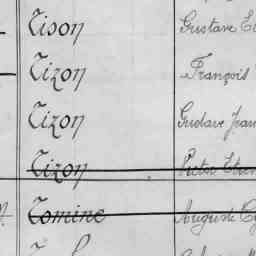 Tison Gustave
Tizon François
Tizon Gustave Jean
Tizon Victor
Tomine Auguste